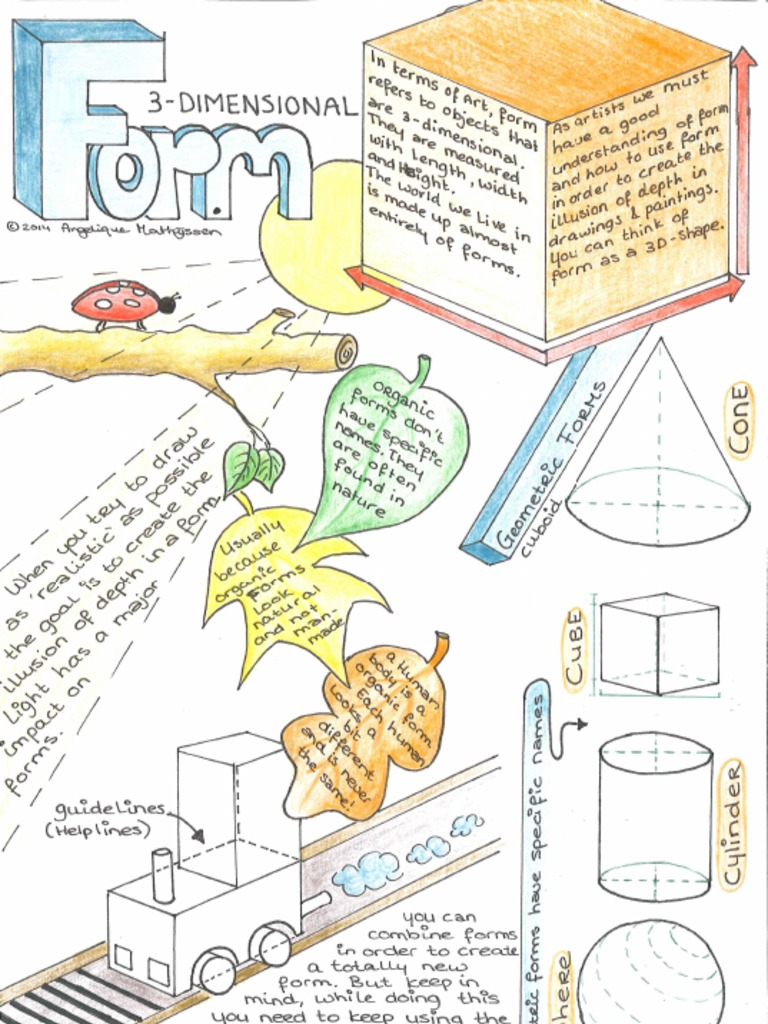 3-DIMENSIONAL
Form
© 2014 Angelique Mathijssen
In terms of Art, form
refers to objects that
are 3-dimensional.
They are measured
with length, width
and Height.
The world we live in
is made up almost
entirely of forms.
As artists we must
have a good
understanding of form
and how to use form
in order to create the
illusion of depth in
drawings & paintings.
You can think of
form as a 3D-shape.
organic
forms don't
have specific
names. They
are often
found in
nature
Usually
because
organic
forms
look
natural
and not
man-
made
a Human
body is a
organic form.
Each human
looks a
bit
different
and is never
the same!
When you try to draw
as 'realistic' as possible
the goal is to create the
illusion of depth in a form.
Light has a major
impact on
forms.
Geometric Forms
cuboid
CONE
CUBE
Cylinder
here
tric forms have specific names
guidelines
(Helplines)
you can
combine forms
in order to create
a totally new
form. But keep in
mind, while doing this
you need to keep using the